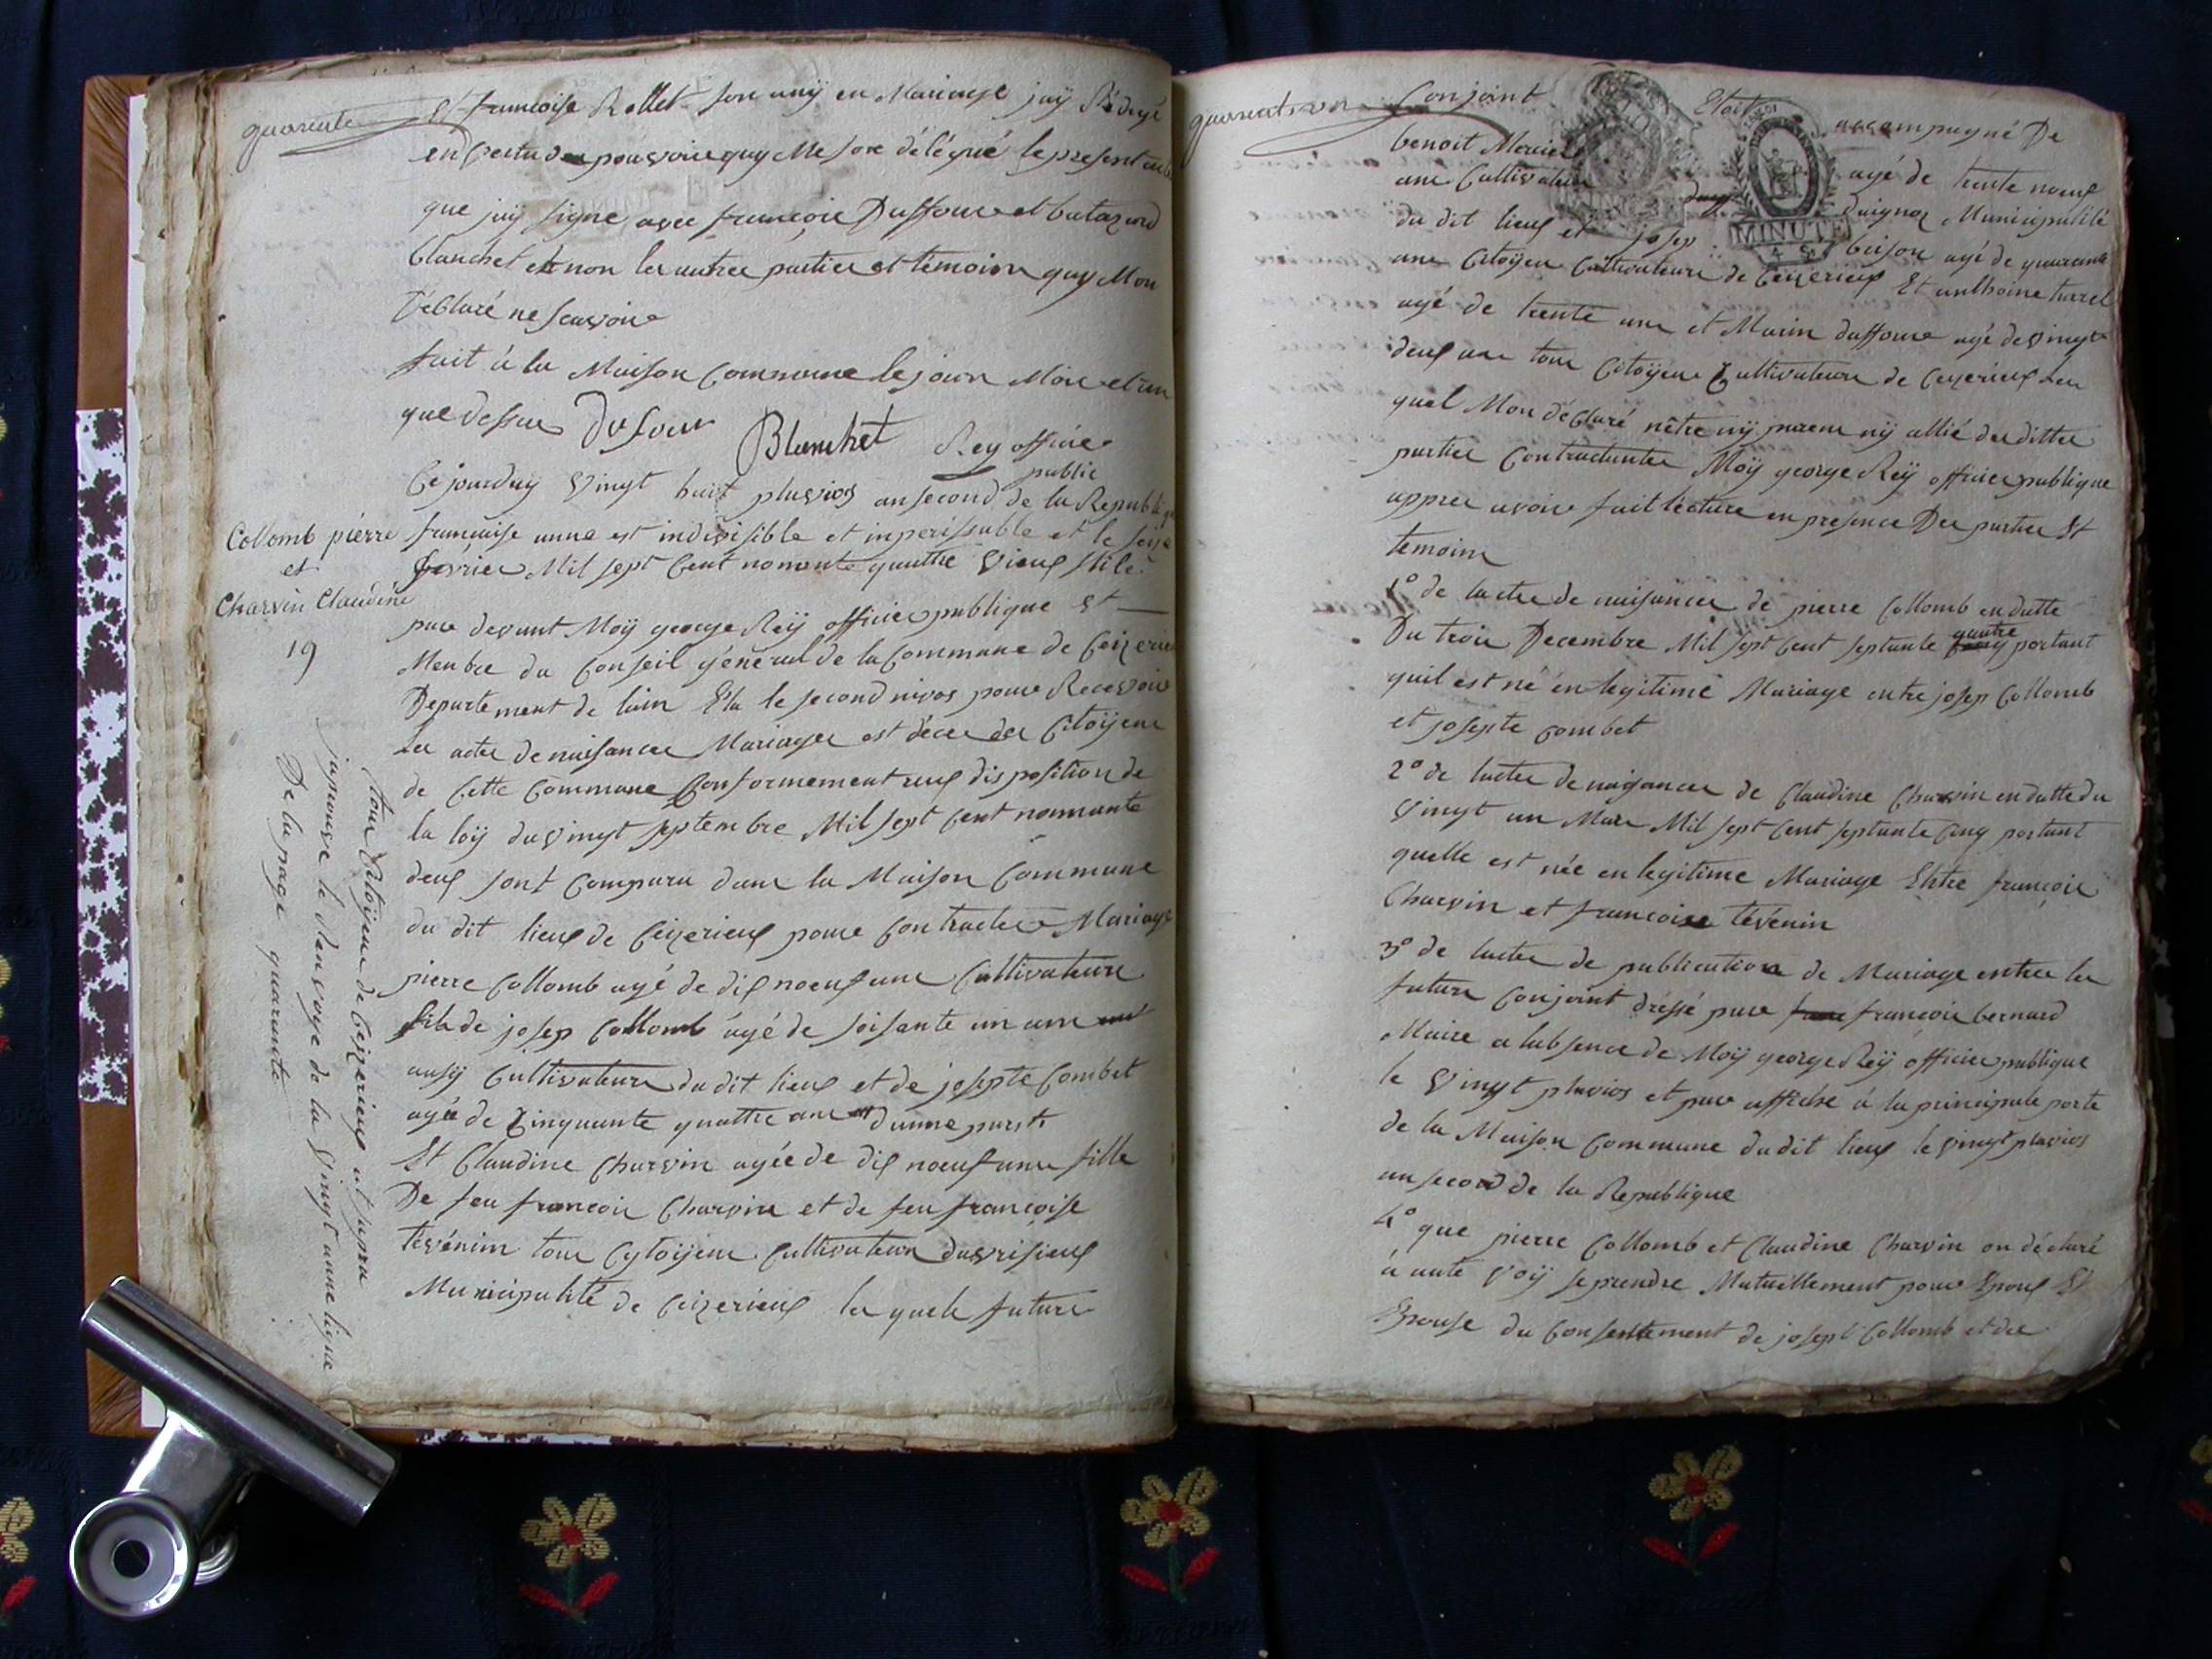 quarante
et francoise Rollet son uny en Mariage jaÿ Rédigé
en vertu des pouvoirs quy Me sont délégué le present acte
que jaÿ signe avec francois Duffour et
Blanchet et non les autres parties et témoins quy Mon
Déclaré ne scavoir
fait à la Maison Commune le jour Mois et an
que dessus Dufour Blanchet Rey officier
public
Ce jourduy vingt huit pluvios an second de la Republique
Collomb pierre
et
Charvin Claudine
19
francaise unne est indivisible et inperissable et le seize
fevrier Mil sept Cent nonante quattre vieux stile
par devant Moÿ george Reÿ officier publique et
Menbre du Conseil géneral de la Commune de Ceizerieu
Departement de lain Elu le second nivos pour Recevoir
les actes de naisances Mariages est déces des Citoÿens
de Cette Commune Conformement aux disposition de
la loÿ du vingt septembre Mil sept Cent nonante
deux sont Comparu dans la Maison Commune
du dit lieux de Ceizerieux pour Contracter Mariage
pierre Collomb agé de dix noeuf ans Cultivateur
fils de josep Collomb agé de soisante un ans
ausÿ Cultivateur du dit lieux et de josepte Combet
agée de Cinquante quattre ans dunne part
Et Claudine Charvin agée de dix noeuf ans fille
De feu francois Charvin et de feu francoise
tévénin tous Cytoÿens Cultivateurs davrisieux
Municipalité de Ceizerieux les quels futurs
tous Citoÿens de Ceizerieux ut supra
japrouve le Renvoye de la vingt unne ligne
De la page quarante
quarant un
Conjoint Etoit accompagné De
benoit Mercier agé de trente noeuf
ans Cultivateur Municipalité
du dit lieux et josep buison agé de quarante
ans Citoÿen Cultivateurs de Ceizerieux Et anthoine turrel
agé de trente ans et Marin duffour agé de vingt
deux ans tous Citoÿens Cultivateurs de Ceizerieux les
quel Mon déclaré nêtre nÿ parens nÿ allié des dittes
parties Contractantes Moÿ george Reÿ officier publique
appres avoir fait lécture en presence Des parties Et
temoins
1º de lactes de naisances de pierre Collomb en datte
Du trois Decembre Mil sept Cent septante quatre portant
quil est né en legitime Mariage entre josep Collomb
et josepte Combet
2º de lactes de naisances de Claudine Charvin en datte du
vingt un Mars Mil sept Cent septante Cinq portant
quelle est née en legitime Mariage Entre francois
Charvin et francoise tévenin
3º de lactes de publication de Mariage entre les
futurs Conjoint dréssé par francois bernard
Maire a labsence de Moÿ george Reÿ officier publique
le vingt pluvios et par affiche à la principale porte
de la Maison Commune du dit lieux le vingt pluvios
an second de la Republique
4º que pierre Collomb et Claudine Charvin on déclaré
à aute voÿ se prendre Mutuellement pour Epoux Et
Epouse du Consentement de josept Collomb et de